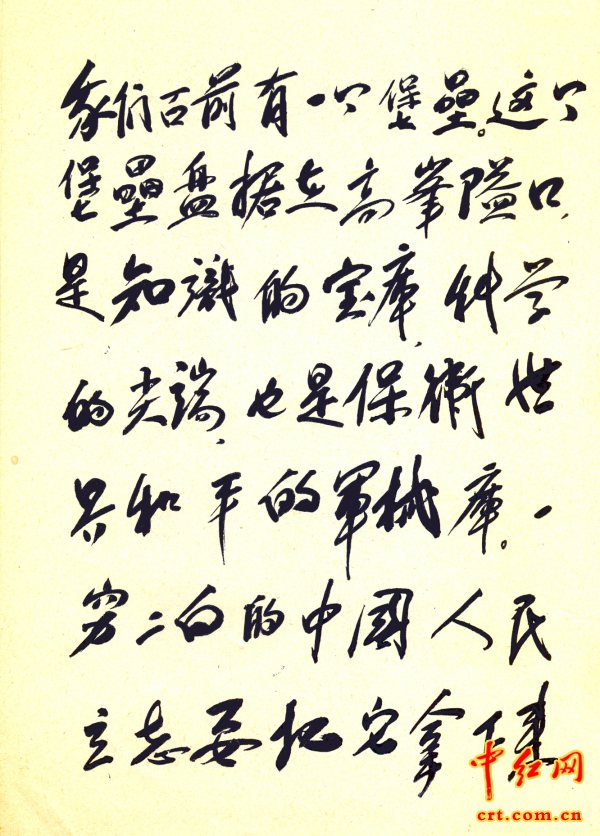 我们面前有一个堡壘。这个
堡壘盘据在高峯隘口,
是知識的宝庫,科学
的尖端,也是保衛世
界和平的軍械庫。一
穷二白的中國人民
立志要把它拿下来
中红网
crt.com.cn